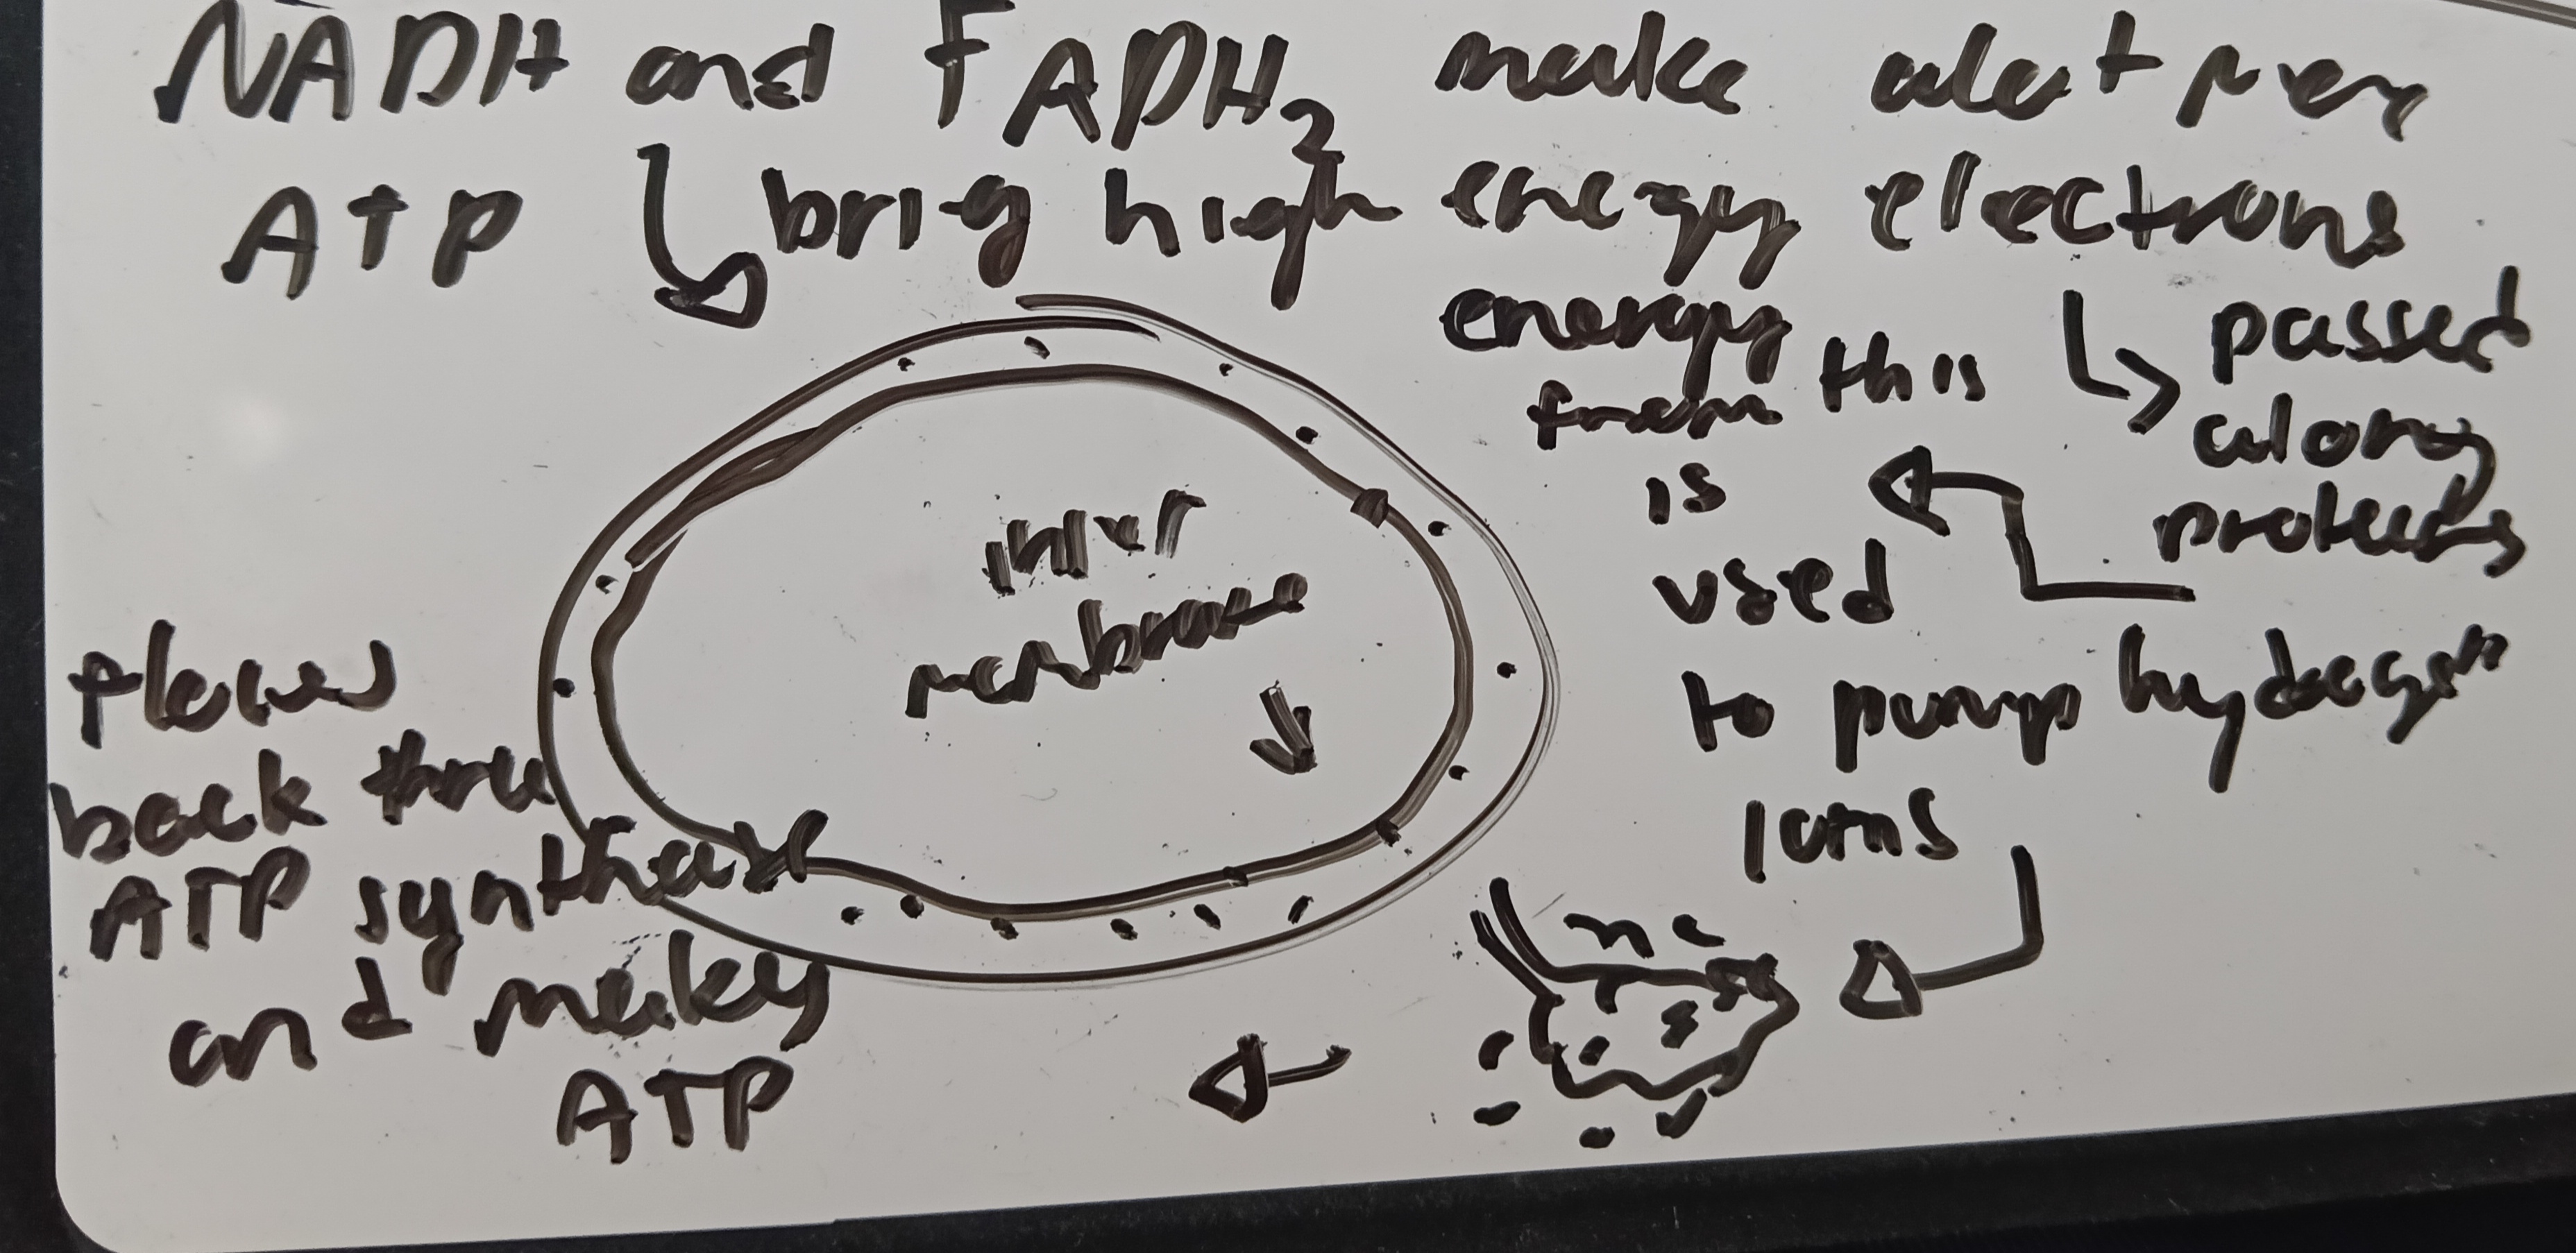 NADH and FADH2 make alot more
ATP
bring high energy electrons
passed
along
proteins
energy
from this
is
used
to pump hydrogen
ions
inner
membrane
flows
back thru
ATP synthase
and makes
ATP